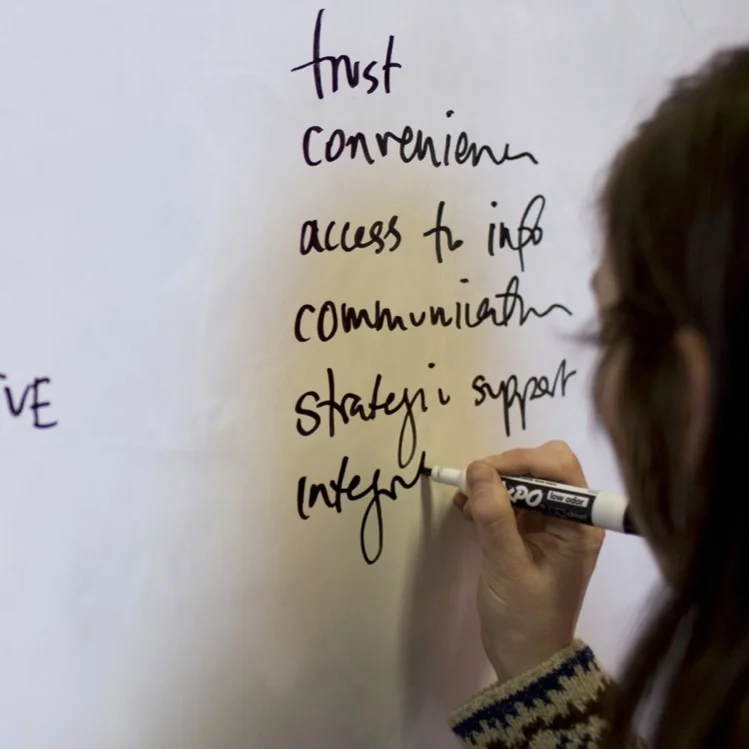 trust
convenience
access to info
communication
strategic support
integri
VE
EXPO low odor